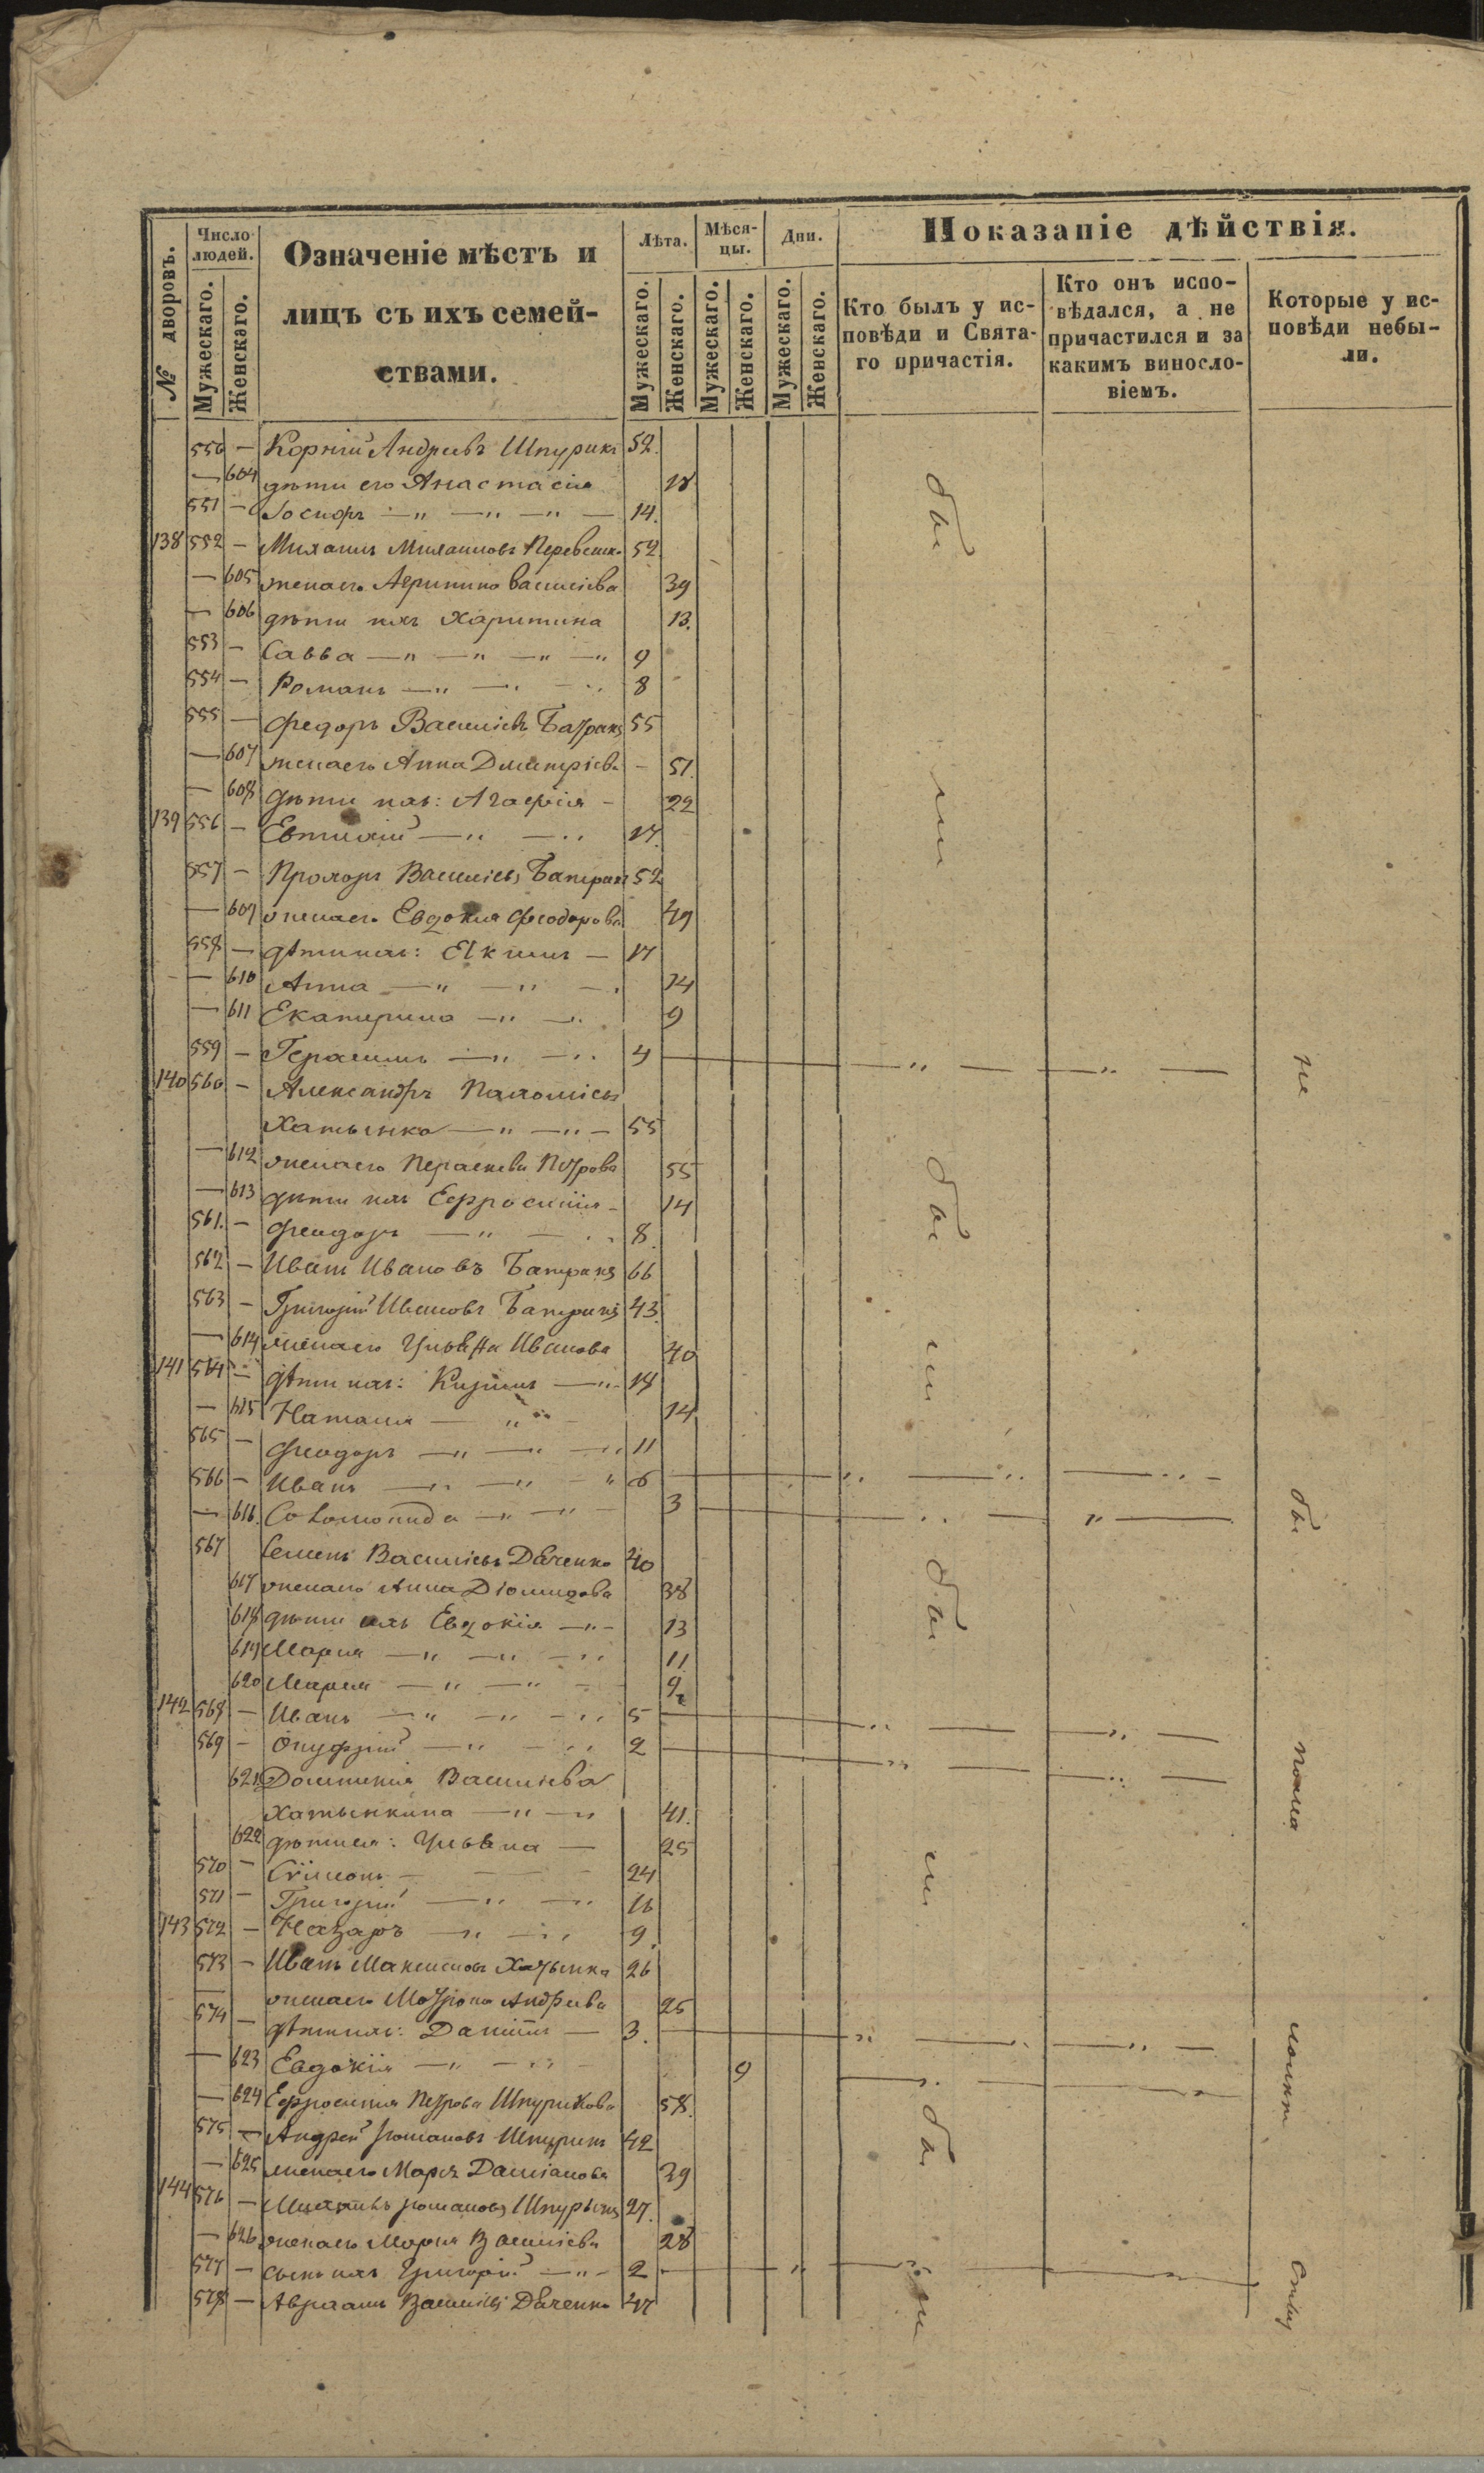 № дворовъ.
Число людей.
Мужескаго.
Женскаго.
Означеніе мѣстъ и
лицъ съ ихъ семей-
ствами.
Лѣта.
Мужескаго.
Женскаго.
Мѣся-
цы.
Мужескаго.
Женскаго.
Дни.
Мужескаго.
Женскаго.
Показаніе дѣйствія.
Кто былъ у ис-
повѣди и Свята-
го причастія.
Кто онъ испо-
вѣдался, а не
причастился и за
какимъ винсло-
віемъ.
Которые у ис-
повѣди небы-
ли.
550 — Корній Андреевъ Шпурикъ 52.
— 604 дѣти его Анастасія 18
551 — Іосифъ —"—"—"— 14.
138 552 — Михаилъ Михаиловъ 52
— 605 жена его Агрипина Василіева 39
— 606 дѣти ихъ Харитина 13.
553 — Савва —"—"—"—" 9
554 — Романъ —"—"—" 8
555 — Федоръ Василіевъ Батракъ 55
— 607 жена его Анна Димитріева — 51.
— 608 дѣти ихъ: Агафія — 22
139 556 — Евтихій —"—" 17.
557 — Прохоръ Василіевъ Батракъ 52
— 609 жена его Евдокія Феодорова 49
558 — дѣти ихъ: Екимъ — 17
— 610 Анна —"—"— 14
— 611 Екатерина —"—" 9
559 — Герасимъ —"—" 4 — " — " —
140 560 — Александръ Пахоміевъ
Хатынка —"—"— 55
— 612 жена его Параскева Петрова 55
— 613 дѣти ихъ Ефросинія — 14
561. — Феодоръ —"—" 8.
562 — Иванъ Ивановъ Батракъ 66
563 — Григорій Ивановъ Батракъ 43.
— 614 жена его Ульяна Иванова 40
141 564 — дѣти ихъ: Кирилъ —"— 18
— 615 Наталія — " — 14
565 — Феодоръ —"—"—" 11
566 — Иванъ —"—"—" 6 — " — " — " —
— 616. Соломонида —"—"— 3 — " — " —
567 Семенъ Василіевъ Даченко 40
617 жена его Анна Діомидова 38
618 дѣти ихъ Евдокія —"— 13
619 Марія —"—"—" 11
620 Марія —"—"— 9
142 568 — Иванъ —"—"—" 5 — " — " —
569 — Онуфрій —"—" 2 — " — " —
621 Домникія Василіева
Хатынкина —"—" 41.
622 дѣти ея: Ульяна — 25
570 — Сѵмеонъ — 24
571 — Григорій —"—" 16
143 572 — Назаръ —"—" 9.
573 — Иванъ Максимовъ Хатынка 26
— жена его Матрона Андреева 25
574 — дѣти ихъ: Даніилъ — 3. — " — " — " —
— 623 Евдокія —"—" 9 — " — "
— 624 Ефросинія Петрова Шпурикова 58.
575 — Андрей Романовъ Шпурикъ 42
— 625 жена его Марѳа Даміанова 39
144 576 — Михаилъ Романовъ Шпурыкъ 27.
— 626 жена его Марія Василіева 28
577 — сынъ ихъ Григорій —"— 2 — " — " — "
578 — Авраамъ Василіевъ Даченко 47
бы
ли
бы
ли
бы
ли
бы
ли
не
бы